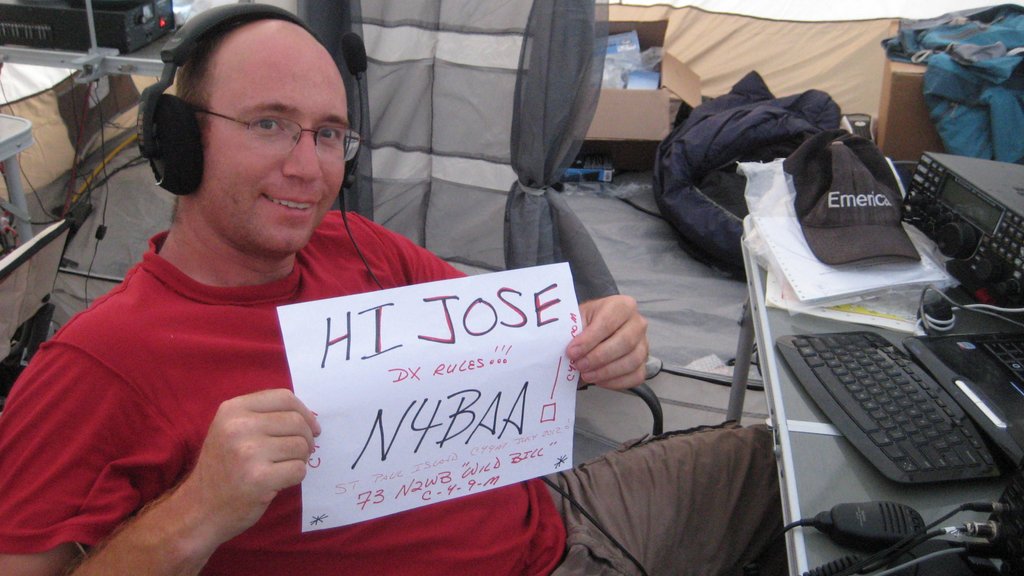 HI JOSE
DX RULES!!!
N4BAA
ST PAUL ISLAND CY9M JULY 2012
73 N2WB "WILD BILL"
C-Y-9-M
Emerica